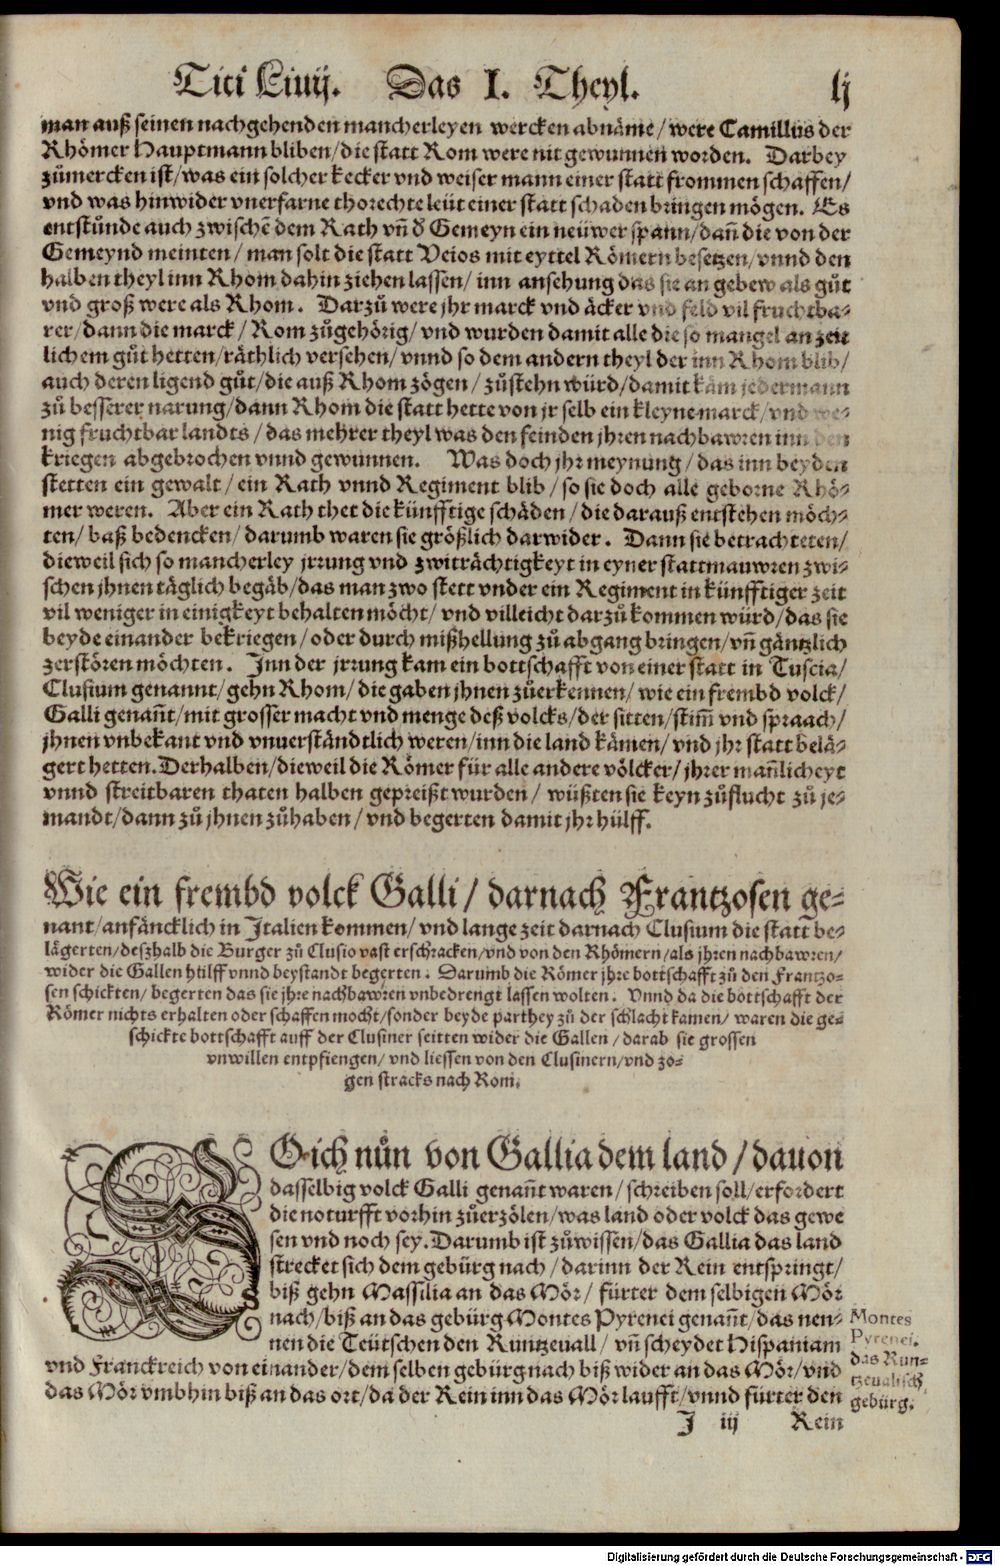 Titi Liuij. Das I. Theyl. lj
man auß seinen nachgehenden mancherleyen wercken abnäme/were Camillus der
Rhömer Hauptmann bliben/die statt Rom were nit gewunnen worden. Darbey
zůmercken ist/was ein solcher kecker vnd weiser mann einer statt frommen schaffen/
vnd was hinwider vnerfarne thorechte leüt einer statt schaden bringen mögen. Es
entstůnde auch zwischē dem Rath vñ d' Gemeyn ein neüwer spann/dañ die von der
Gemeynd meinten/ man solt die statt Veios mit eyttel Römern besetzen/vnnd den
halben theyl inn Rhom dahin ziehen lassen/ inn ansehung das sie an gebew als gůt
vnd groß were als Rhom. Darzů were jhr marck vnd äcker vnd feld vil fruchtba-
rer/dann die marck/ Rom zůgehörig/ vnd wurden damit alle die so mangel an zeit
lichem gůt hetten/räthlich versehen/vnnd so dem andern theyl der inn Rhom blib/
auch deren ligend gůt/die auß Rhom zögen/ zůstehn würd/damit käm jedermann
zů besserer narung/dann Rhom die statt hette von jr selb ein kleyne marck/vnd we-
nig fruchtbar landts/das mehrer theyl was den feinden jhren nachbawren inn den
kriegen abgebrochen vnnd gewunnen. Was doch jhr meynung/das inn beyden
stetten ein gewalt/ein Rath vnnd Regiment blib/so sie doch alle geborne Rhö-
mer weren. Aber ein Rath thet die künfftige schäden/die darauß entstehen möch-
ten/ baß bedencken/darumb waren sie größlich darwider. Dann sie betrachteten/
dieweil sich so mancherley jrrung vnd zwiträchtigkeyt in eyner stattmauwren zwi-
schen jhnen täglich begäb/das man zwo stett vnder ein Regiment in künfftiger zeit
vil weniger in einigkeyt behalten möcht/ vnd villeicht darzů kommen würd/das sie
beyde einander bekriegen/oder durch mißhellung zů abgang bringen/vñ gäntzlich
zerstören möchten. Inn der jrrung kam ein bottschafft von einer statt in Tuscia/
Clusium genannt/gehn Rhom/die gaben jhnen zůerkennen/ wie ein frembd volck/
Galli genañt/mit grosser macht vnd menge deß volcks/der sitten/stiṁ vnd spraach/
jhnen vnbekant vnd vnuerständtlich weren/inn die land kämen/ vnd jhr statt belä-
gert hetten. Derhalben/dieweil die Römer für alle andere völcker/jhrer mañlicheyt
vnnd streitbaren thaten halben gepreißt wurden/ wüßten sie keyn zůflucht zů je-
mandt/dann zů jhnen zůhaben/ vnd begerten damit jhr hülff.
Wie ein frembd volck Galli/ darnach Frantzosen ge-
nant/anfäncklich in Italien kommen/ vnd lange zeit darnach Clusium die statt be-
lägerten/deßhalb die Burger zů Clusio vast erschracken/vnd von den Rhömern/als jhren nachbawren/
wider die Gallen hülff vnnd beystandt begerten. Darumb die Römer jhre bottschafft zů den Frantzo-
sen schickten/ begerten das sie jhre nachbawren vnbedrengt lassen wolten. Vnnd da die bottschafft der
Römer nichts erhalten oder schaffen mocht/sonder beyde parthey zů der schlacht kamen/ waren die ge-
schickte bottschafft auff der Clusiner seitten wider die Gallen/darab sie grossen
vnwillen entpfiengen/vnd liessen von den Clusinern/vnd zo-
gen stracks nach Rom.
SO ich nůn von Gallia dem land/dauon
dasselbig volck Galli genañt waren/schreiben soll/erfordert
die noturfft vorhin zůerzölen/was land oder volck das gewe
sen vnd noch sey. Darumb ist zůwissen/das Gallia das land
strecket sich dem gebürg nach/darinn der Rein entspringt/
biß gehn Massilia an das Mör/ fürter dem selbigen Mör
nach/biß an das gebürg Montes Pyrenei genañt/das nen-
nen die Teütschen den Runtzeuall/ vñ scheydet Hispaniam
vnd Franckreich von einander/dem selben gebürg nach biß wider an das Mör/vnd
das Mör vmbhin biß an das ort/da der Rein inn das Mör laufft/vnnd fürter den
Montes
Pyrenei.
das Run-
tzeualisch
gebürg.
J iij Rein
Digitalisierung gefördert durch die Deutsche Forschungsgemeinschaft - DFG